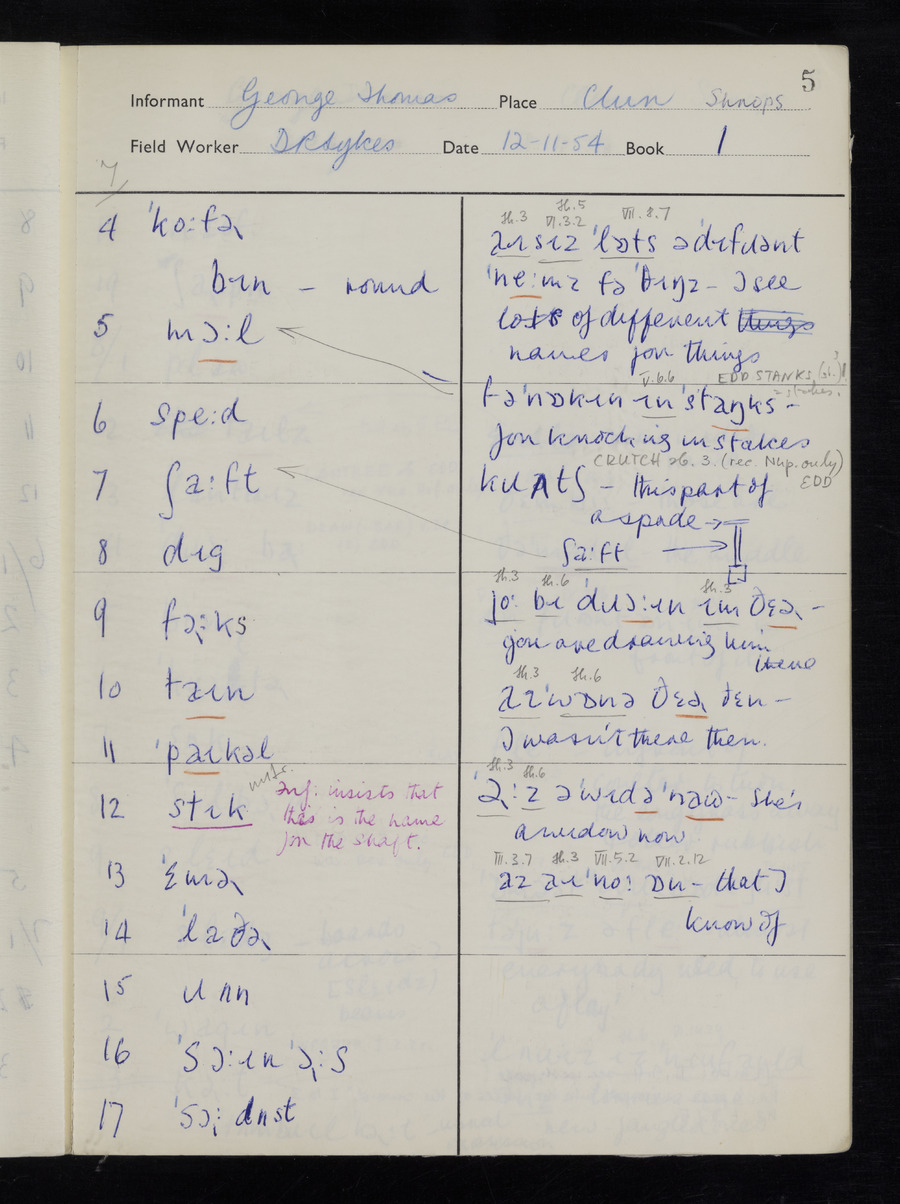 5
Informant George Thomas Place Clun Shrops
Field Worker D R Sykes Date 12-11-54 Book 1
7/
4 ˈkoːfɚ
bɪn – round
5 mɔːl
6 speːd
7 ʃaːft
8 dɪg
9 fɚːks
10 taɪn
11 ˈpaɪkəl
12 stɪk
Inf. insists that
this is the name
for the shaft.
13 ˈɛmɚ
14 ˈlaðɚ
15
16
17
sh.3 VI.3.2 sh.5 VII.8.7
aɪ sɪz ˈlɒts ə dɪfdənt
ˈneːmz fə ˈθɪŋz – I see
lots of different things
names for things
V.6.6 EDD STANKS
fə ˈnɒkɪn ɪn ˈstaŋks –
for knocking in stakes
CRUTCH sb. 3. (rec. Nhp. only)
EDD
krʌtʃ – this part of
a spade →
ʃaːft →
sh.3 sh.6 sh.3
joː bɪ ˈdɹɔːɪn ɪm ðɛɚ –
you are drawing him
there
sh.3 sh.6
aɪ ˈwɒnə ðɛɚ ðɛn –
I wasn't there then.
sh.3 sh.6
ˈɚːz ə ˈwɪdə ˈnaw – she's
a widow now
III.3.7 sh.3 VII.5.2 VII.2.12
az aɪ ˈnoː ɒn – that I
know of